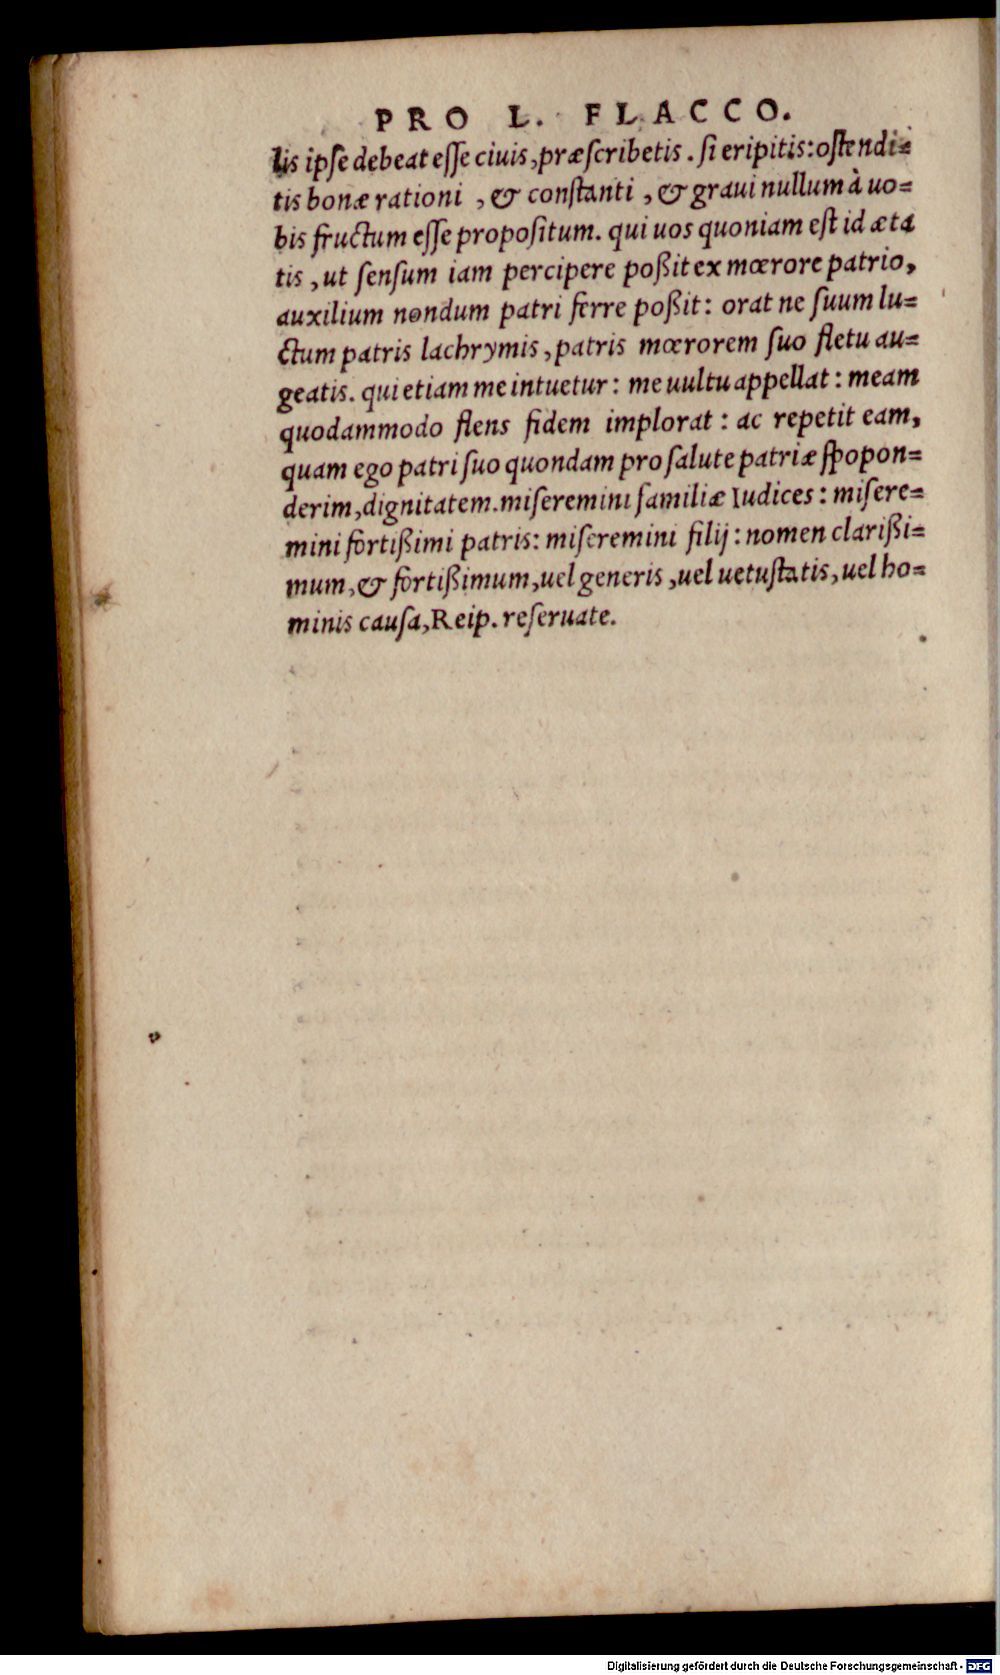 PRO L. FLACCO.
lis ipse debeat esse ciuis, præscribetis. si eripitis: ostendi=
tis bonæ rationi, & constanti, & graui nullum à uo=
bis fructum esse propositum. qui uos quoniam est id æta
tis, ut sensum iam percipere poßit ex mœrore patrio,
auxilium nondum patri ferre poßit: orat ne suum lu=
ctum patris lachrymis, patris mœrorem suo fletu au=
geatis. qui etiam me intuetur: me uultu appellat: meam
quodammodo flens fidem implorat: ac repetit eam,
quam ego patri suo quondam pro salute patriæ spopon=
derim, dignitatem. miseremini familiæ Iudices: misere=
mini fortißimi patris: miseremini filij: nomen clarißi=
mum, & fortißimum, uel generis, uel uetustatis, uel ho=
minis causa, Reip. reseruate.
Digitalisierung gefördert durch die Deutsche Forschungsgemeinschaft - DFG